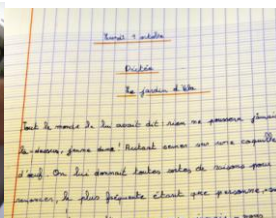 Lundi 1 octobre
Dictée
Le jardin d'
Tout le monde le lui avait dit : rien ne poussera jamais
là-dessus, jeune dame ! Autant semer sur une coquille
d'œuf. On lui donnait toutes sortes de raisons pour
renoncer, la plus fréquente étant que personne,